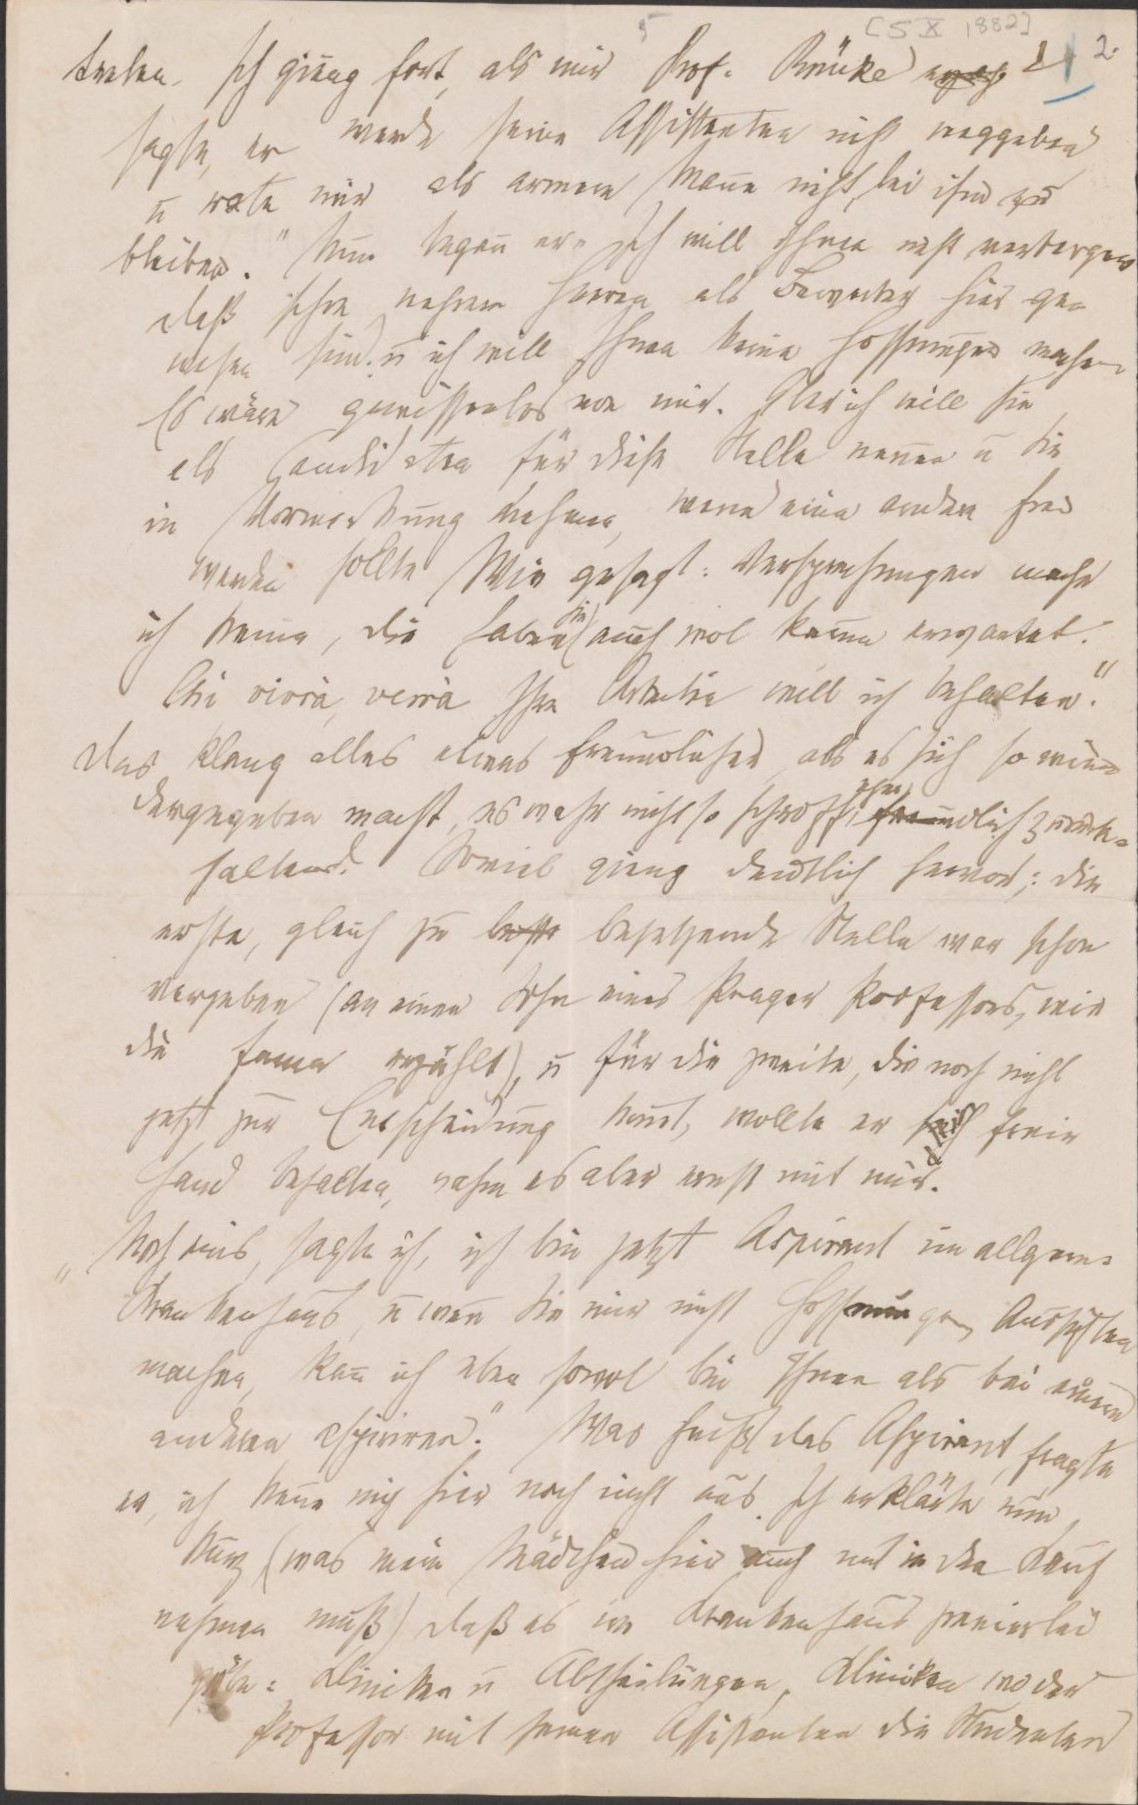 [5 X 1882]
2.
treten. Ich gieng fort, als mir Prof. Brücke
sagte, er werde seine Assistenten nicht weggeben
u rate mir als armem Mann nicht, bei ihm zu
bleiben." Nun begann er „Ich will Ihnen nicht verbergen
daß schon mehrere Herren als Bewerber hier ge-
wesen sind u ich will Ihnen keine Hoffnungen machen
Es wäre gewissenlos von mir. Aber ich will Sie
als Candidaten für diese Stelle nennen u Sie
in Vormerkung nehmen, wenn eine andere frei
werden sollte Wie gesagt: Versprechungen mache
ich keine, die haben Sie auch wol kaum erwartet.
Chi vivrà, verrà Ihre Arbeiten will ich behalten."
Das klang alles etwas freundlicher, als es sich so wie-
dergegeben macht, es war nicht so schroff, eher freundlich zurück-
haltend. Soviel gieng deutlich hervor: die
erste, gleich zu besetzende Stelle war schon
vergeben (an einen Sohn eines Prager Professors, wie
die Fama erzählt), u für die zweite, die noch nicht
jetzt zur Entscheidung kommt, wollte er sich freie
Hand behalten, nahm es aber ernst mit mir.
„Noch eins, sagte ich, ich bin jetzt Aspirant im allgem.
Krankenhaus, u wenn Sie mir nicht Hoffnungen, Aussichten
machen, kann ich eben sowol bei Ihnen als bei einem
anderen aspiriren." Was heißt das Aspirant, fragte
er, ich kenne mich hier noch nicht aus. Ich erklärte nun,
kurz (was mein Mädchen hier auch mit in den Kauf
nehmen muß) daß es im Krankenhaus zweierlei
gäbe: Kliniken u Abtheilungen, Kliniken wo der
Professor mit seinen Assistenten die Studenten